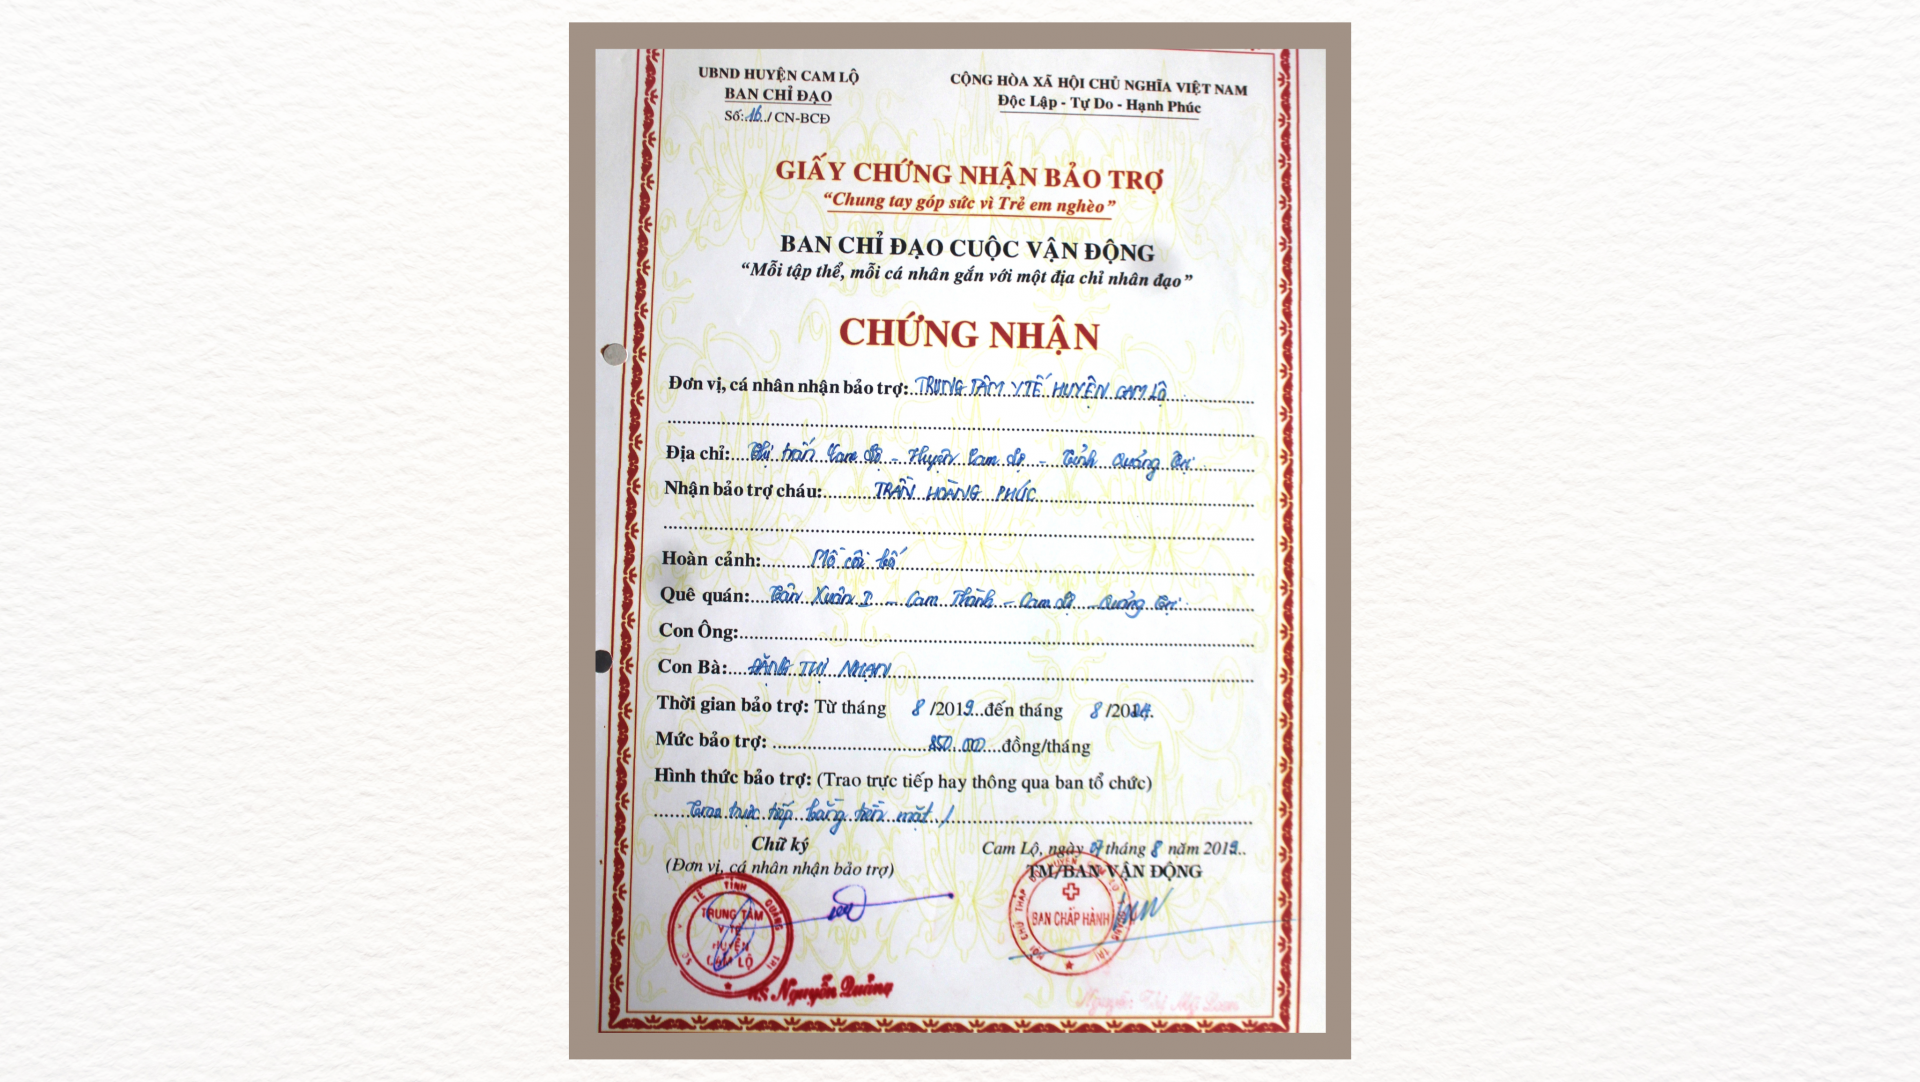 UBND HUYỆN CAM LỘ
BAN CHỈ ĐẠO
Số: 16../ CN-BCĐ
CỘNG HÒA XÃ HỘI CHỦ NGHĨA VIỆT NAM
Độc Lập - Tự Do - Hạnh Phúc
GIẤY CHỨNG NHẬN BẢO TRỢ
“Chung tay góp sức vì Trẻ em nghèo”
BAN CHỈ ĐẠO CUỘC VẬN ĐỘNG
“Mỗi tập thể, mỗi cá nhân gắn với một địa chỉ nhân đạo”
CHỨNG NHẬN
Đơn vị, cá nhân nhận bảo trợ: TRUNG TÂM Y TẾ HUYỆN CAM LỘ
Địa chỉ: Thị trấn Cam Lộ - Huyện Cam Lộ - Tỉnh Quảng Trị
Nhận bảo trợ cháu: TRẦN HOÀNG PHÚC
Hoàn cảnh: Mồ côi bố
Quê quán: Tân Xuân I - Cam Thành - Cam Lộ - Quảng Trị
Con Ông:
Con Bà: ĐẶNG THỊ NHẠN
Thời gian bảo trợ: Từ tháng 8 /2019...đến tháng 8 /2024.
Mức bảo trợ: 850.000 đồng/tháng
Hình thức bảo trợ: (Trao trực tiếp hay thông qua ban tổ chức)
Trao trực tiếp bằng tiền mặt /
Chữ ký
(Đơn vị, cá nhân nhận bảo trợ)
Cam Lộ, ngày 07 tháng 8 năm 2019..
TM/BAN VẬN ĐỘNG
Y TẾ TỈNH QUẢNG TRỊ
TRUNG TÂM
Y TẾ
HUYỆN
CAM LỘ
Nguyễn Quảng
BAN CHẤP HÀNH